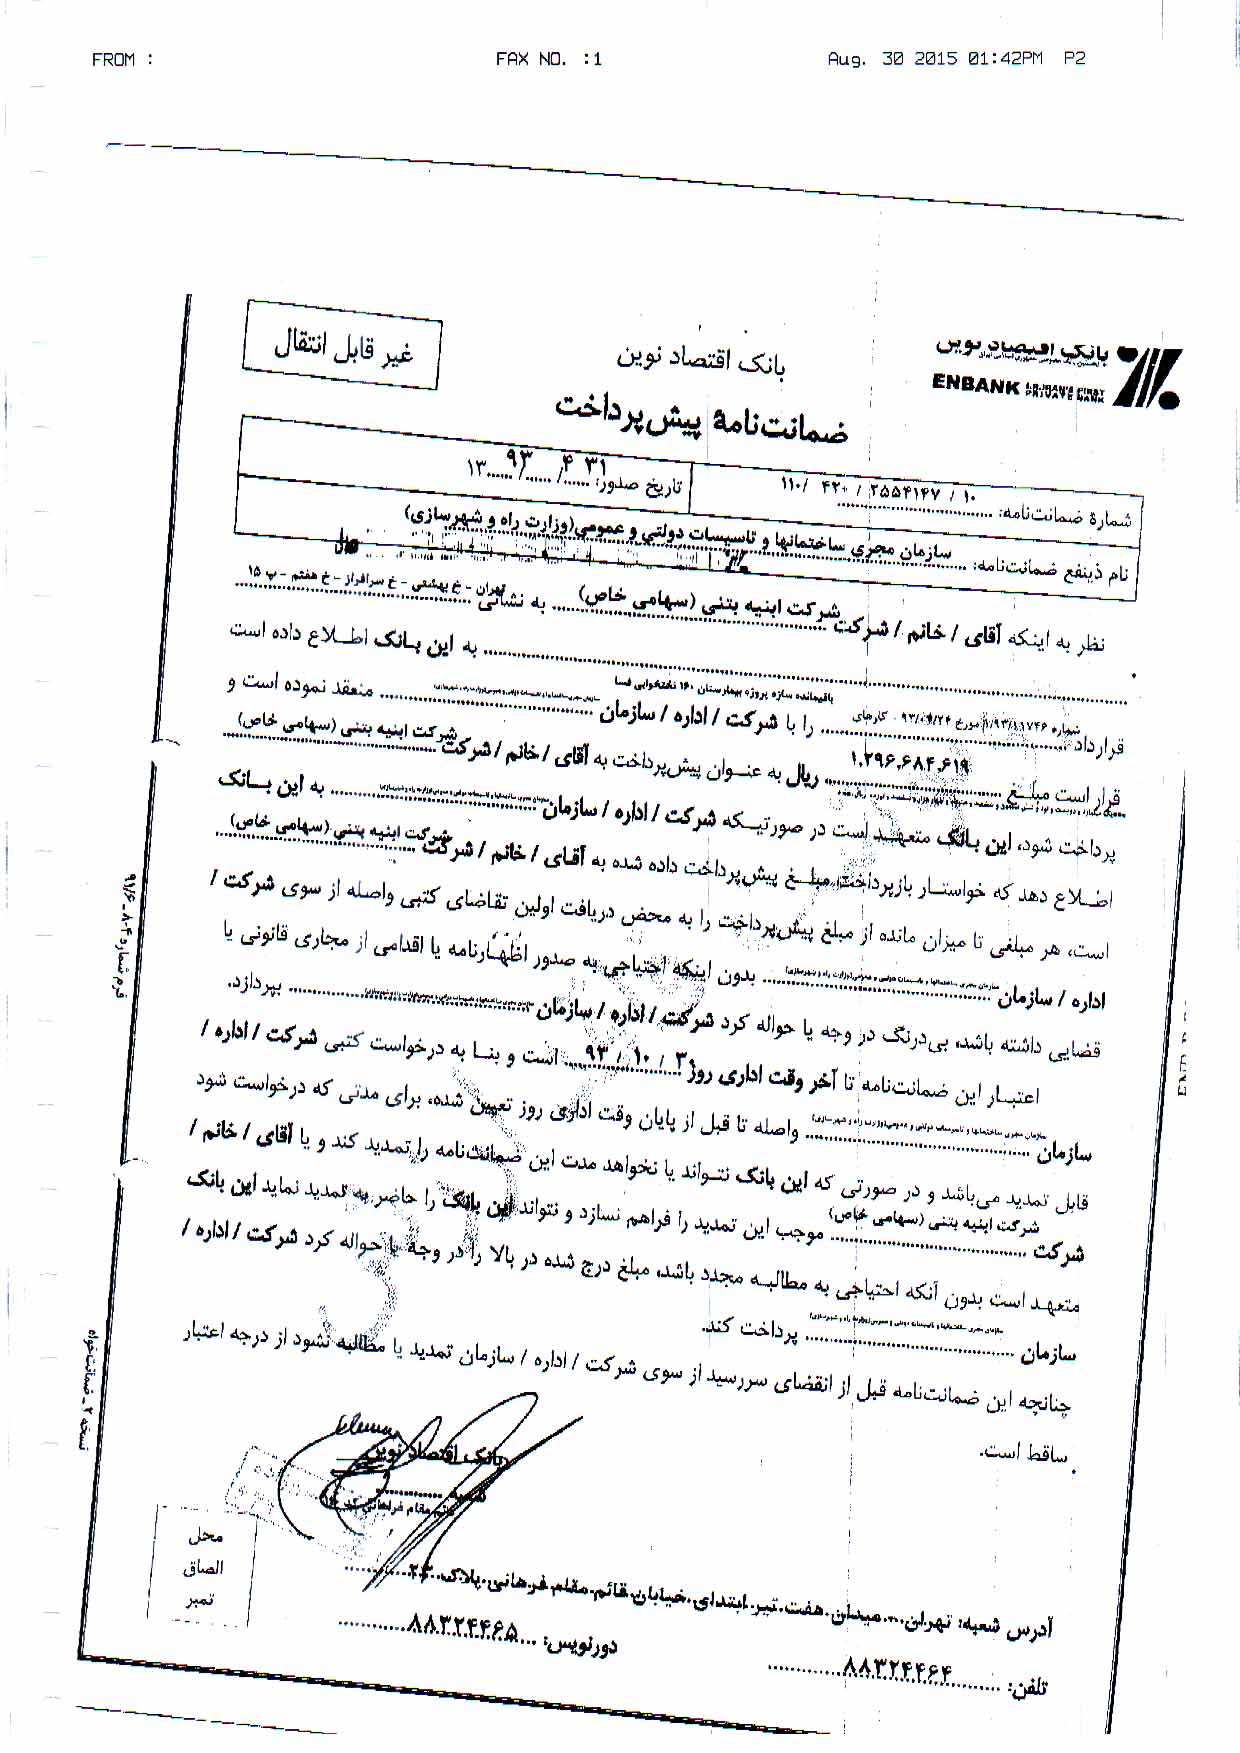 FROM :
FAX NO. :1
Aug. 30 2015 01:42PM P2
بانک اقتصاد نوین
ENBANK
بانک اقتصاد نوین
غیر قابل انتقال
ضمانت‌نامه پیش‌پرداخت
شمارهٔ ضمانت‌نامه: ۱۱۰/ ۴۲۰ / ۲۵۵۴۱۴۷ / ۱۰
تاریخ صدور: ۳۱/ ۴/ ۱۳۹۳
نام ذینفع ضمانت‌نامه: سازمان مجری ساختمانها و تاسیسات دولتی و عمومی(وزارت راه و شهرسازی)
نظر به اینکه آقای / خانم / شرکت شرکت ابنیه بتنی (سهامی خاص) به نشانی تهران - خ بهشتی - خ سرافراز - خ هفتم - پ ۱۵
به این بانک اطلاع داده است
قرارداد شماره مورخ کارهای باقیمانده سازه پروژه بیمارستان ۱۶۰ تختخوابی فسا را با شرکت / اداره / سازمان منعقد نموده است و
قرار است مبلغ ۱.۲۹۶.۶۸۴.۶۱۹ ریال به عنوان پیش‌پرداخت به آقای / خانم / شرکت شرکت ابنیه بتنی (سهامی خاص)
پرداخت شود، این بانک متعهد است در صورتیکه شرکت / اداره / سازمان به این بانک
اطلاع دهد که خواستار بازپرداخت مبلغ پیش‌پرداخت داده شده به آقای / خانم / شرکت شرکت ابنیه بتنی (سهامی خاص)
است، هر مبلغی تا میزان مانده از مبلغ پیش‌پرداخت را به محض دریافت اولین تقاضای کتبی واصله از سوی شرکت /
اداره / سازمان بدون اینکه احتیاجی به صدور اظهارنامه یا اقدامی از مجاری قانونی یا
قضایی داشته باشد، بی‌درنگ در وجه یا حواله کرد شرکت / اداره / سازمان بپردازد.
اعتبار این ضمانت‌نامه تا آخر وقت اداری روز ۳ / ۱۰ / ۹۳ است و بنا به درخواست کتبی شرکت / اداره /
سازمان واصله تا قبل از پایان وقت اداری روز تعیین شده، برای مدتی که درخواست شود
قابل تمدید می‌باشد و در صورتی که این بانک نتواند یا نخواهد مدت این ضمانت‌نامه را تمدید کند و یا آقای / خانم /
شرکت شرکت ابنیه بتنی (سهامی خاص) موجب این تمدید را فراهم نسازد و نتواند این بانک را حاضر به تمدید نماید این بانک
متعهد است بدون آنکه احتیاجی به مطالبه مجدد باشد، مبلغ درج شده در بالا را در وجه یا حواله کرد شرکت / اداره /
سازمان پرداخت کند.
چنانچه این ضمانت‌نامه قبل از انقضای سررسید از سوی شرکت / اداره / سازمان تمدید یا مطالبه نشود از درجه اعتبار
ساقط است.
بانک اقتصاد نوین
شعبه
محل
الصاق
تمبر
آدرس شعبه: تهران - میدان هفت تیر ابتدای خیابان قائم مقام فرهانی پلاک ۲۳
تلفن: ۸۸۳۲۴۴۶۴
دورنویس: ۸۸۳۲۴۴۶۵
فرم شماره ۴-۸-۹۱/۶
نسخه ۲ - ضمانت‌خواه